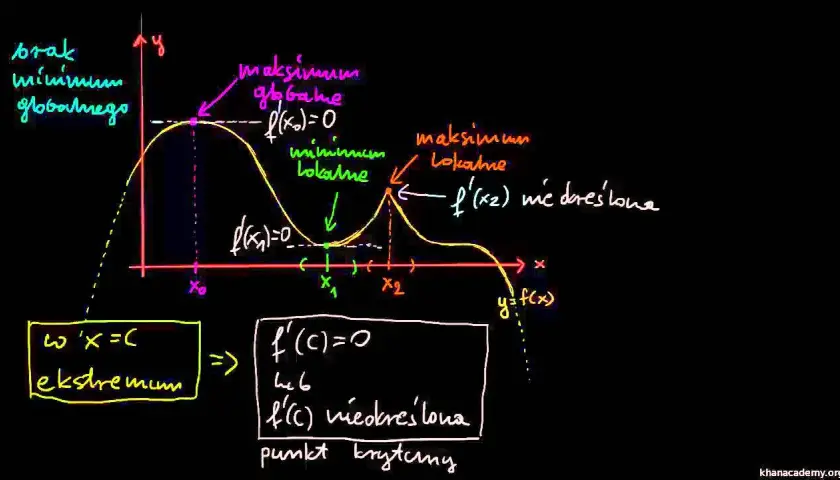 brak
minimum
globalnego
y
maksimum
globalne
f'(x₀)=0
minimum
lokalne
maksimum
lokalne
f'(x₂) nieokreślona
f'(x₁)=0
x
x₀
x₁
x₂
y=f(x)
w x=c
ekstremum
=>
f'(c)=0
lub
f'(c) nieokreślona
punkt krytyczny
khanacademy.org